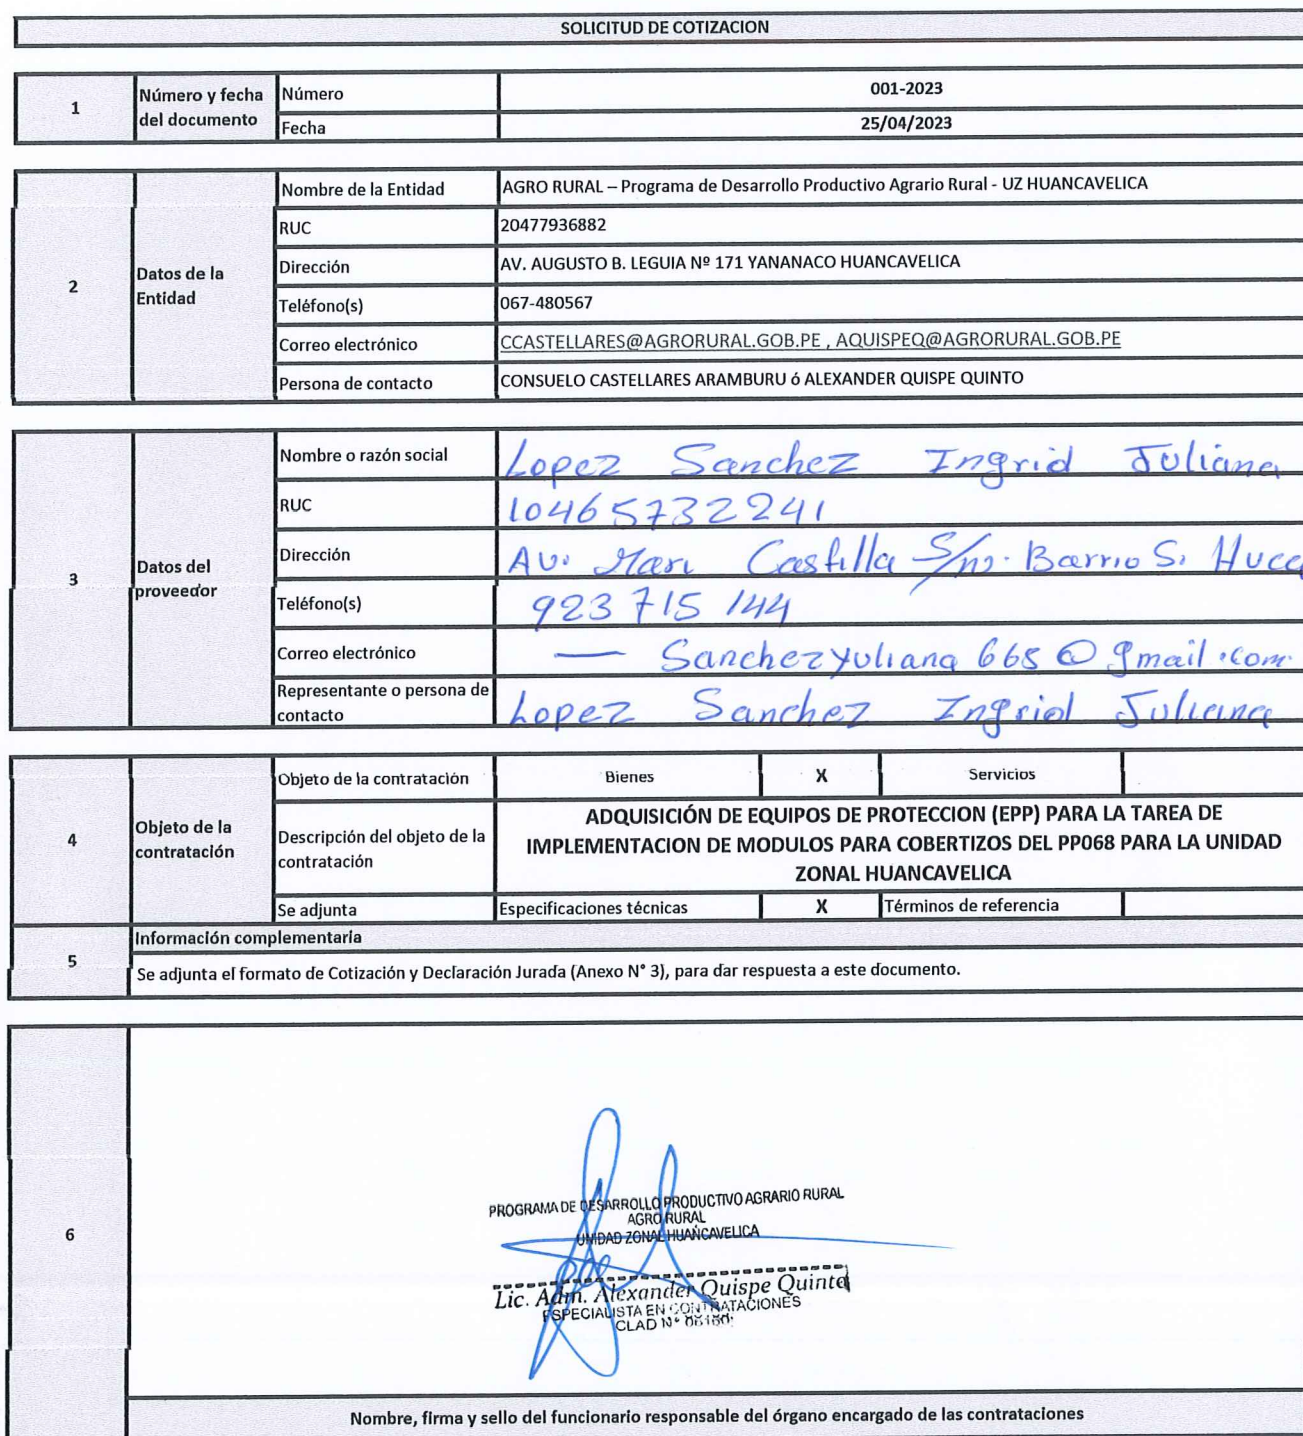 SOLICITUD DE COTIZACION
1
Número y fecha del documento
Número
001-2023
Fecha
25/04/2023
2
Datos de la Entidad
Nombre de la Entidad
AGRO RURAL – Programa de Desarrollo Productivo Agrario Rural - UZ HUANCAVELICA
RUC
20477936882
Dirección
AV. AUGUSTO B. LEGUIA Nº 171 YANANACO HUANCAVELICA
Teléfono(s)
067-480567
Correo electrónico
CCASTELLARES@AGRORURAL.GOB.PE , AQUISPEQ@AGRORURAL.GOB.PE
Persona de contacto
CONSUELO CASTELLARES ARAMBURU ó ALEXANDER QUISPE QUINTO
3
Datos del proveedor
Nombre o razón social
Lopez Sanchez Ingrid Juliana
RUC
10465732241
Dirección
Av. Castilla S/n. Barrio S.
Teléfono(s)
923 715 144
Correo electrónico
— Sanchezyuliana 665 @ gmail.com
Representante o persona de contacto
Lopez Sanchez Ingrid Juliana
4
Objeto de la contratación
Objeto de la contratación
Bienes X Servicios
Descripción del objeto de la contratación
ADQUISICIÓN DE EQUIPOS DE PROTECCION (EPP) PARA LA TAREA DE
IMPLEMENTACION DE MODULOS PARA COBERTIZOS DEL PP068 PARA LA UNIDAD
ZONAL HUANCAVELICA
Se adjunta
Especificaciones técnicas X Términos de referencia
5
Información complementaria
Se adjunta el formato de Cotización y Declaración Jurada (Anexo N° 3), para dar respuesta a este documento.
6
PROGRAMA DE DESARROLLO PRODUCTIVO AGRARIO RURAL
AGRO RURAL
UNIDAD ZONAL HUANCAVELICA
Lic. Adm. Alexander Quispe Quinto
ESPECIALISTA EN CONTRATACIONES
CLAD N°
Nombre, firma y sello del funcionario responsable del órgano encargado de las contrataciones